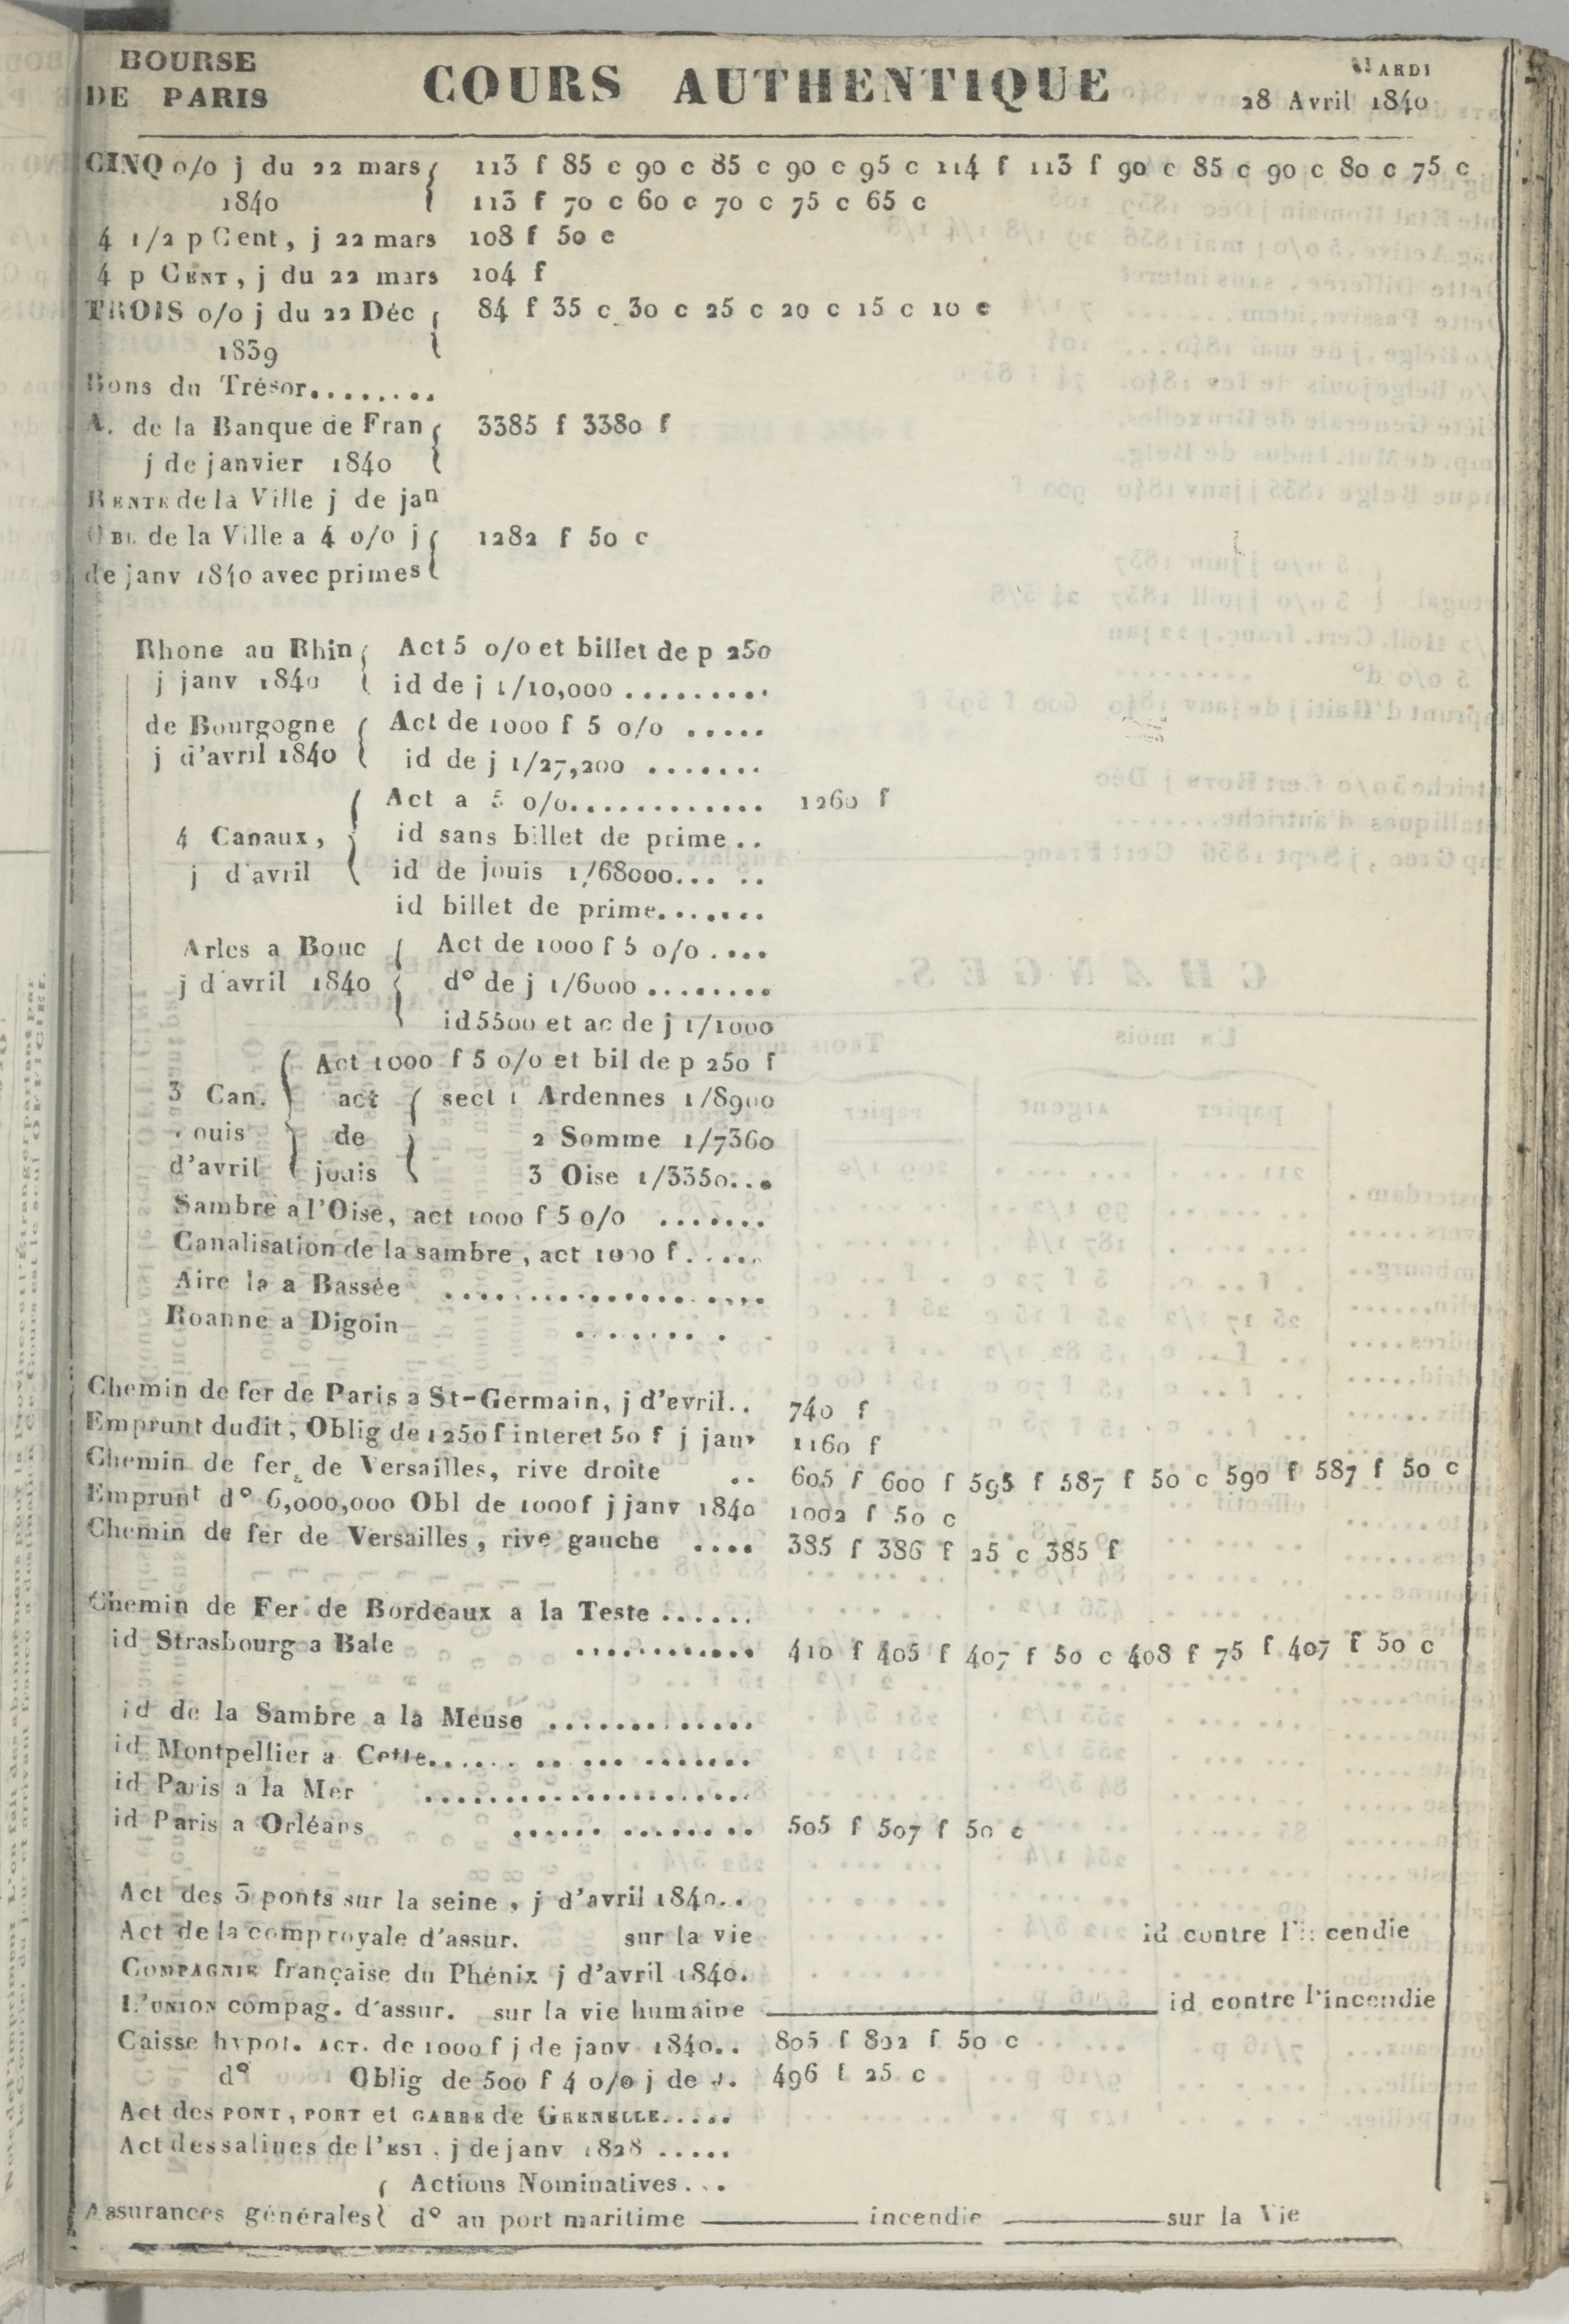 BOURSE
DE PARIS
COURS AUTHENTIQUE
MARDI
28 Avril 1840
CINQ o/o j du 22 mars 113 f 85 c 90 c 85 c 90 c 95 c 114 f 113 f 90 c 85 c 90 c 80 c 75 c
1840 113 f 70 c 60 c 70 c 75 c 65 c
4 1/2 p Cent, j 22 mars 108 f 50 c
4 p CENT, j du 22 mars 104 f
TROIS o/o j du 22 Déc 84 f 35 c 30 c 25 c 20 c 15 c 10 c
1839
Bons du Trésor........
A. de la Banque de Fran 3385 f 3380 f
j de janvier 1840
RENTE de la Ville j de jan
OBL de la Ville a 4 o/o j 1282 f 50 c
de janv 1840 avec primes
Rhone au Rhin Act 5 o/o et billet de p 250
j janv 1840 id de j 1/10,000 .........
de Bourgogne Act de 1000 f 5 o/o .....
j d'avril 1840 id de j 1/27,200 .......
Act a 5 o/o............ 1260 f
4 Canaux, id sans billet de prime..
j d'avril id de jouis 1/68000... ..
id billet de prime.......
Arles a Bouc Act de 1000 f 5 o/o ....
j d'avril 1840 d° de j 1/6000 ........
id 5500 et ac de j 1/1000
Act 1000 f 5 o/o et bil de p 250 f
3 Can. act sect 1 Ardennes 1/8900
ouis de 2 Somme 1/7360
d'avril jouis 3 Oise 1/3350...
Sambre a l'Oise, act 1000 f 5 o/o .......
Canalisation de la sambre, act 1000 f.....
Aire la a Bassée ..................
Roanne a Digoin ........
Chemin de fer de Paris a St-Germain, j d'evril.. 740 f
Emprunt dudit, Oblig de 1250 f interet 50 f j janv 1160 f
Chemin de fer de Versailles, rive droite .. 605 f 600 f 595 f 587 f 50 c 590 f 587 f 50 c
Emprunt d° 6,000,000 Obl de 1000f j janv 1840 1002 f 50 c
Chemin de fer de Versailles, rive gauche .... 385 f 386 f 25 c 385 f
Chemin de Fer de Bordeaux a la Teste ......
id Strasbourg a Bale ........... 410 f 405 f 407 f 50 c 408 f 75 f 407 f 50 c
id de la Sambre a la Meuse .............
id Montpellier a Cette...... .. ... .......
id Paris a la Mer ....................
id Paris a Orléans ...... ........ 505 f 507 f 50 c
Act des 3 ponts sur la seine, j d'avril 1840..
Act de la comp royale d'assur. sur la vie id contre l'incendie
COMPAGNIE française du Phénix j d'avril 1840.
L'UNION compag. d'assur. sur la vie humaine id contre l'incendie
Caisse hypot. ACT. de 1000 f j de janv 1840.. 805 f 802 f 50 c
d° Oblig de 500 f 4 o/o j de J. 496 f 25 c
Act des PONT, PORT et GARRE de GRENELLE.....
Act des salines de l'EST. j de janv 1828 .....
Actions Nominatives...
Assurances générales d° au port maritime incendie sur la Vie